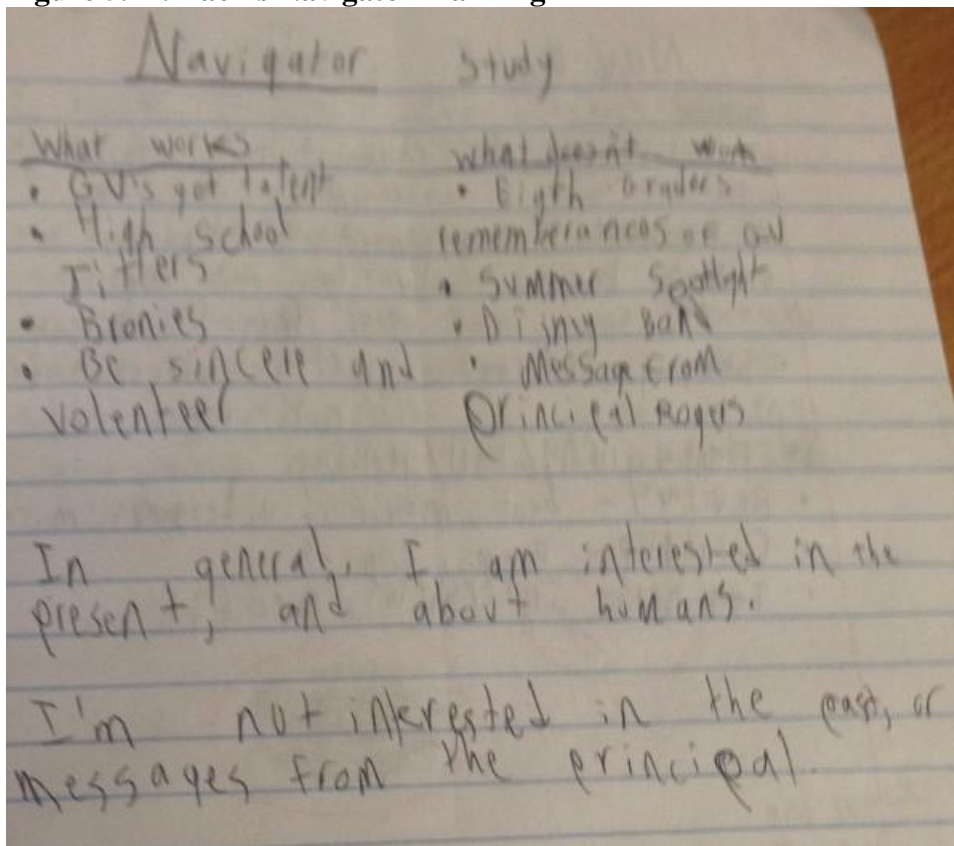 Navigator Study
What works
• GV's got talent
• High School
Jitters
• Bronies
• Be sincere and
volenteer
what doesn't work
• Eigth Graders
rememberances of GV
• Summer Spotlight
• Disny Band
• Message from
principal Rogers
In general, I am interested in the
present, and about humans.
I'm not interested in the past, or
messages from the principal.